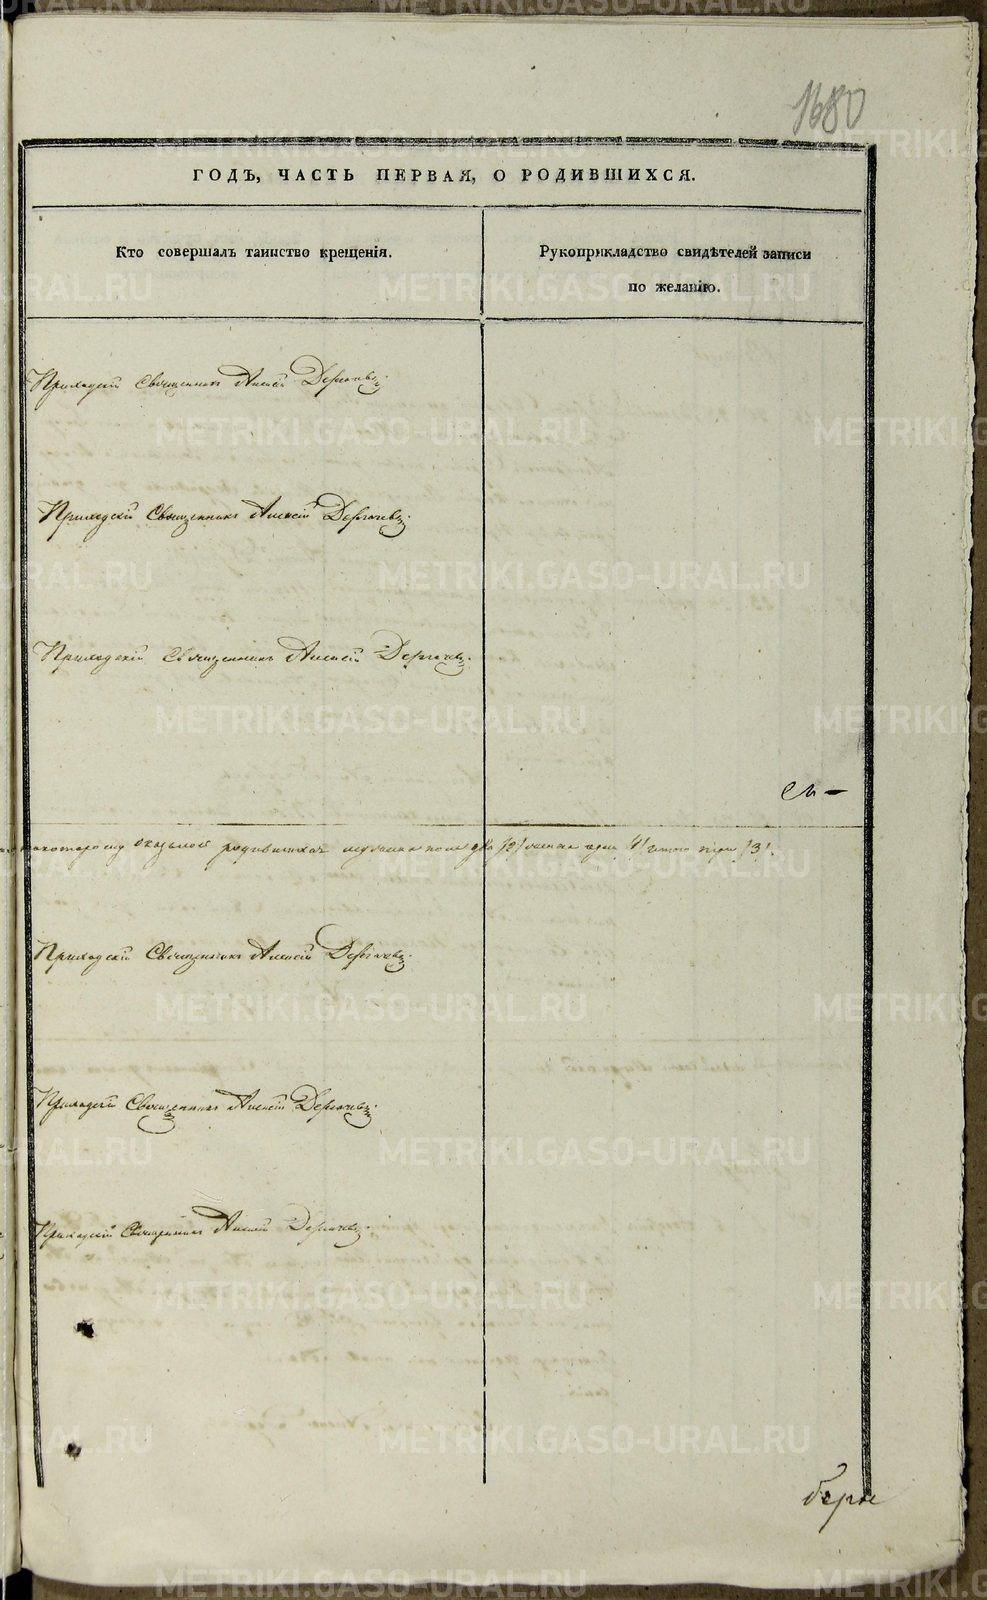 1680
ГОДЪ, ЧАСТЬ ПЕРВАЯ, О РОДИВШИХСЯ.
Кто совершалъ таинство крещенія.
Рукоприкладство свидѣтелей записи
по желанію.
Приходскій Священникъ Алексѣй Дергачевъ.
Приходскій Священникъ Алексѣй Дергачевъ.
Приходскій Священникъ Алексѣй Дергачевъ.
родившихся мужеска пола два /2/ женска /1/ итого три /3/.
Приходскій Священникъ Алексѣй Дергачевъ.
Приходскій Священникъ Алексѣй Дергачевъ.
Приходскій Священникъ Алексѣй Дергачевъ.
METRIKI.GASO-URAL.RU